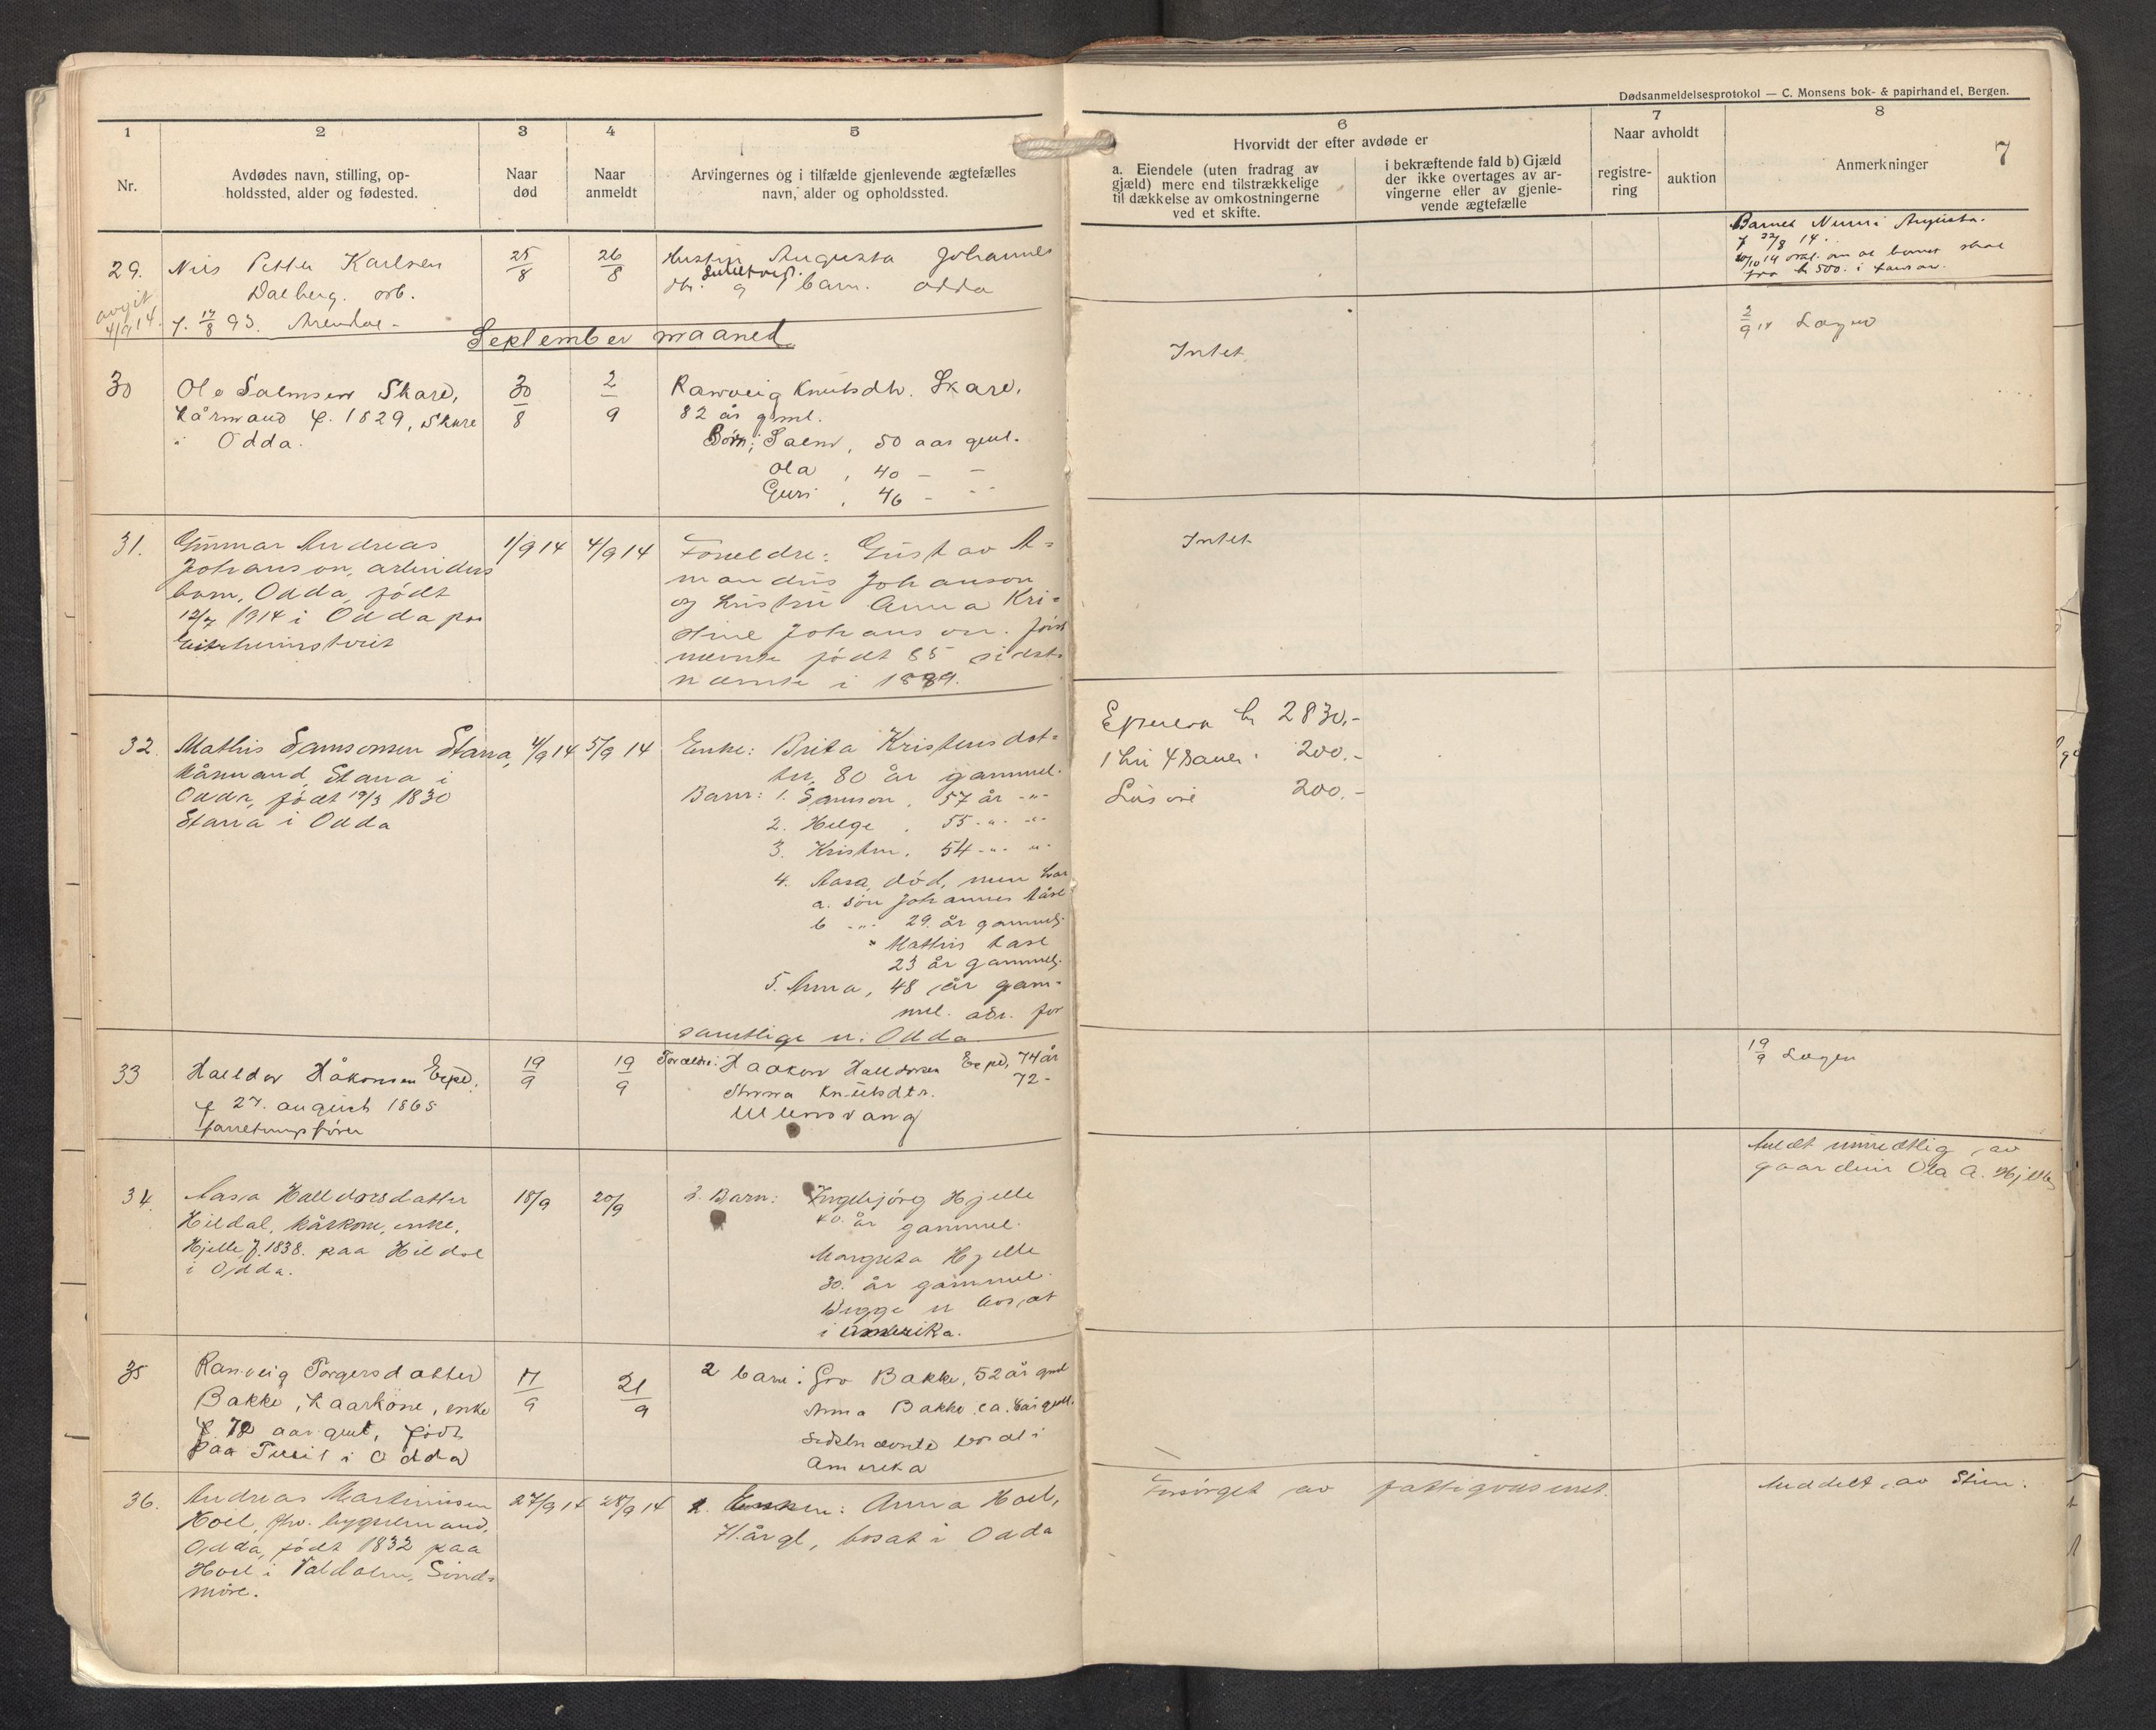 Dødsanmeldelsesprotokol — C. Monsens bok- & papirhandel, Bergen.
7
1 2 3 4 5 6 7 8
Nr.
Avdødes navn, stilling, op-
holdssted, alder og fødested.
Naar
død
Naar
anmeldt
Arvingernes og i tilfælde gjenlevende ægtefælles
navn, alder og opholdssted.
Hvorvidt der efter avdøde er
a. Eiendele (uten fradrag av
gjæld) mere end tilstrækkelige
til dækkelse av omkostningerne
ved et skifte.
i bekræftende fald b) Gjæld
der ikke overtages av ar-
vingerne eller av gjenle-
vende ægtefælle
Naar avholdt
registre-
ring
auktion
Anmerkninger
29.
Petter Karlsen
Dalberg. arb.
f. 17/8 93.
avgit
4/9 14.
25/8
26/8
Hustru Augusta Johannes
dtr. og 1 barn. Odda
Barnet Augusta.
f 22/8 14.
September maaned
30
Ole Salmsen Skare,
kårmand f. 1829, Skare
i Odda.
30/8
2/9
Ranveig Knutsdtr. Skare,
82 år gml.
Børn; Salm, 50 aar gml.
Ola, 40 - -
Guri, 46 - -
Intet
2/9 14
31.
Gunnar Andreas
Johanson, arbeiders
barn, Odda, født
12/7 1914 i Odda paa
Eitrheimstveit
1/9 14
4/9 14
Forældre: Gustav A=
mandus Johanson
og hustru Anna Kri=
stine Johanson. først
nævnte født 85 sidst-
nævnte i 1889.
Intet
32.
Mathis Samsonsen Stana,
kårmand Stana i
Odda, født 19/3 1830
Stana i Odda
4/9 14
5/9 14
Enke: Brita Kristensdot=
ter, 80 år gammel.
Barn: 1. Samson, 57 år -"-
2. Helge, 55 -"- -"-
3. Kristen, 54 -"- "-
4. Aasa, død, men har
a. søn Johannes
b -"- 29 år gammel.
" Mathis
23 år gammel.
5. Anna, 48 år gam-
mel. adr. for
samtlige er: Odda
kr 2830,-
200.-
Løsøre 200.-
33
Halldor Håkonsen Espe,
f 27. august 1865
19/9
19/9
Forældre: Haakon Halldorsen Espe, 74 år
Knutsdtr. 72 -
Ullensvang
19/9
34.
Aasa Halldorsdatter
Hildal, kårkone, enke,
Hjelle, f. 1838. paa Hildal
i Odda.
18/9
20/9
2. Barn: Ingebjörg Hjelle
40. år gammel.
Margreta Hjelle
30. år gammel.
Begge er bosat
i Amerika.
Meldt mundtlig av
gaardeier Ola A. Hjelle
35
Ranveig Torgersdatter
Bakke, kaarkone, enke
f. 78 aar gml, født
paa i Odda
17/9
21/9
2 barn: Gro Bakke, 52 år gml
Anna Bakke ca.
Sidstnævnte bosat i
Amerika
36.
Andreas Martinusen
Hoel, fhv. bygselmand,
Odda, født 1832 paa
Hoel i Valdalen, Sönd=
möre.
27/9 14
28/9 14
Enken: Anna Hoel,
71. år gl, bosat i Odda
Forsörget av fattigvæsenet.
Meddelt av